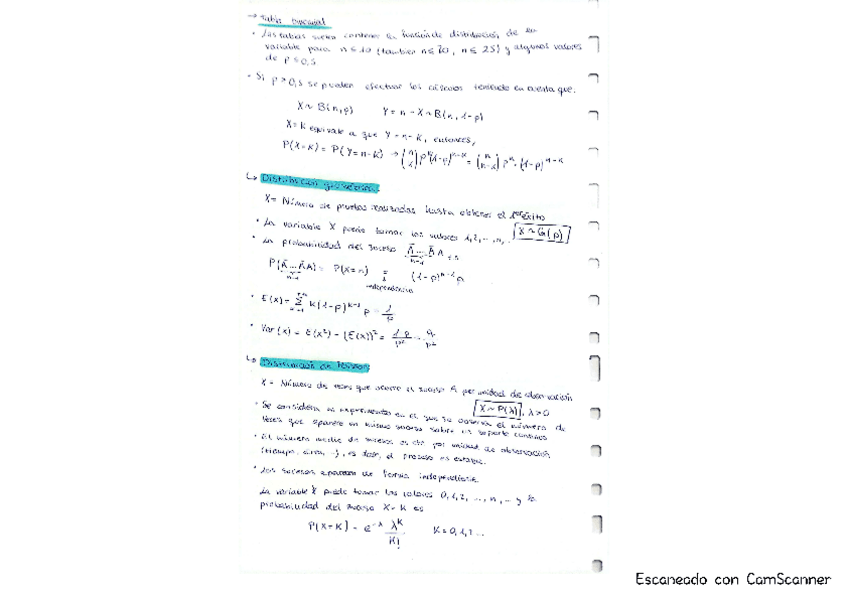 → Tabla binomial
• Las tablas suelen contener la función de distribución de la
variable para n ≤ 10 (también n ≤ 20, n ≤ 25) y algunos valores
de p ≤ 0,5
• Si p > 0,5 se pueden efectuar los cálculos teniendo en cuenta que:
X ~ B(n,p) Y = n - X ~ B(n, 1-p)
X = K equivale a que Y = n - K, entonces,
P(X=K) = P(Y=n-K) →
↳ Distribución geométrica
X = Número de pruebas realizadas hasta obtener el 1er éxito
• La variable X puede tomar los valores 1, 2, ..., n, ... X ~ G(p)
• La probabilidad del suceso Ā...Ā A es
P(Ā...Ā A) = P(X=n) = (1-p)^n-1 p
independencia
• E(X) = Σ K(1-p)^K-1 p =
• Var(X) = E(X²) - (E(X))² =
↳ Distribución de Poisson
X = Número de veces que ocurre el suceso A por unidad de observación
X ~ P(λ), λ > 0
• Se considera un experimento en el que se observa el número de
veces que aparece un mismo suceso sobre un soporte continuo
• El número medio de sucesos es cte por unidad de observación
(tiempo, área, ...), es decir, el proceso es estable.
• Los sucesos aparecen de forma independiente
La variable X puede tomar los valores 0, 1, 2, ..., n, ... y la
probabilidad del suceso X = K es
P(X=K) = e^-λ λ^K / K! K = 0, 1, 2 ...
Escaneado con CamScanner